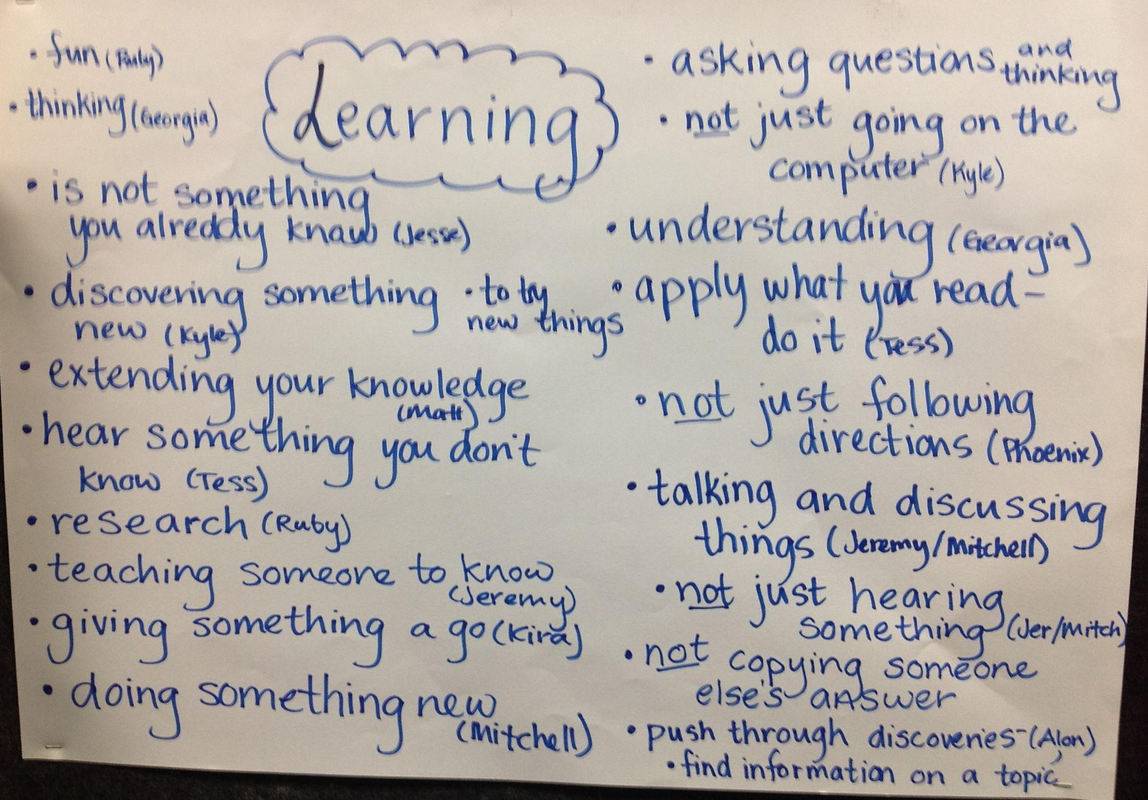 Learning
• fun (Ruby)
• thinking (Georgia)
• is not something
you alreddy know (Jesse)
• discovering something
new (Kyle)
• to try
new things
• extending your knowledge
(Matt)
• hear something you don't
know (Tess)
• research (Ruby)
• teaching someone to know
(Jeremy)
• giving something a go (Kira)
• doing something new
(Mitchell)
• asking questions and
thinking
• not just going on the
computer (Kyle)
• understanding (Georgia)
• apply what you read -
do it (Tess)
• not just following
directions (Phoenix)
• talking and discussing
things (Jeremy/Mitchell)
• not just hearing
something (Jer/Mitch)
• not copying someone
else's answer
• push through discoveries - (Alon)
• find information on a topic